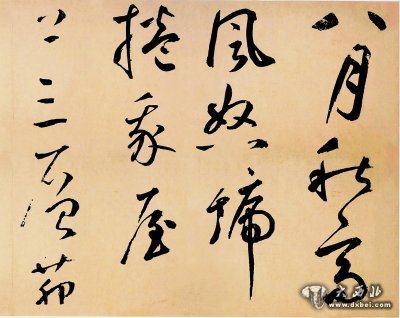 八月秋高
風怒號
捲我屋
上三茆
大西北
www.dxbei.com